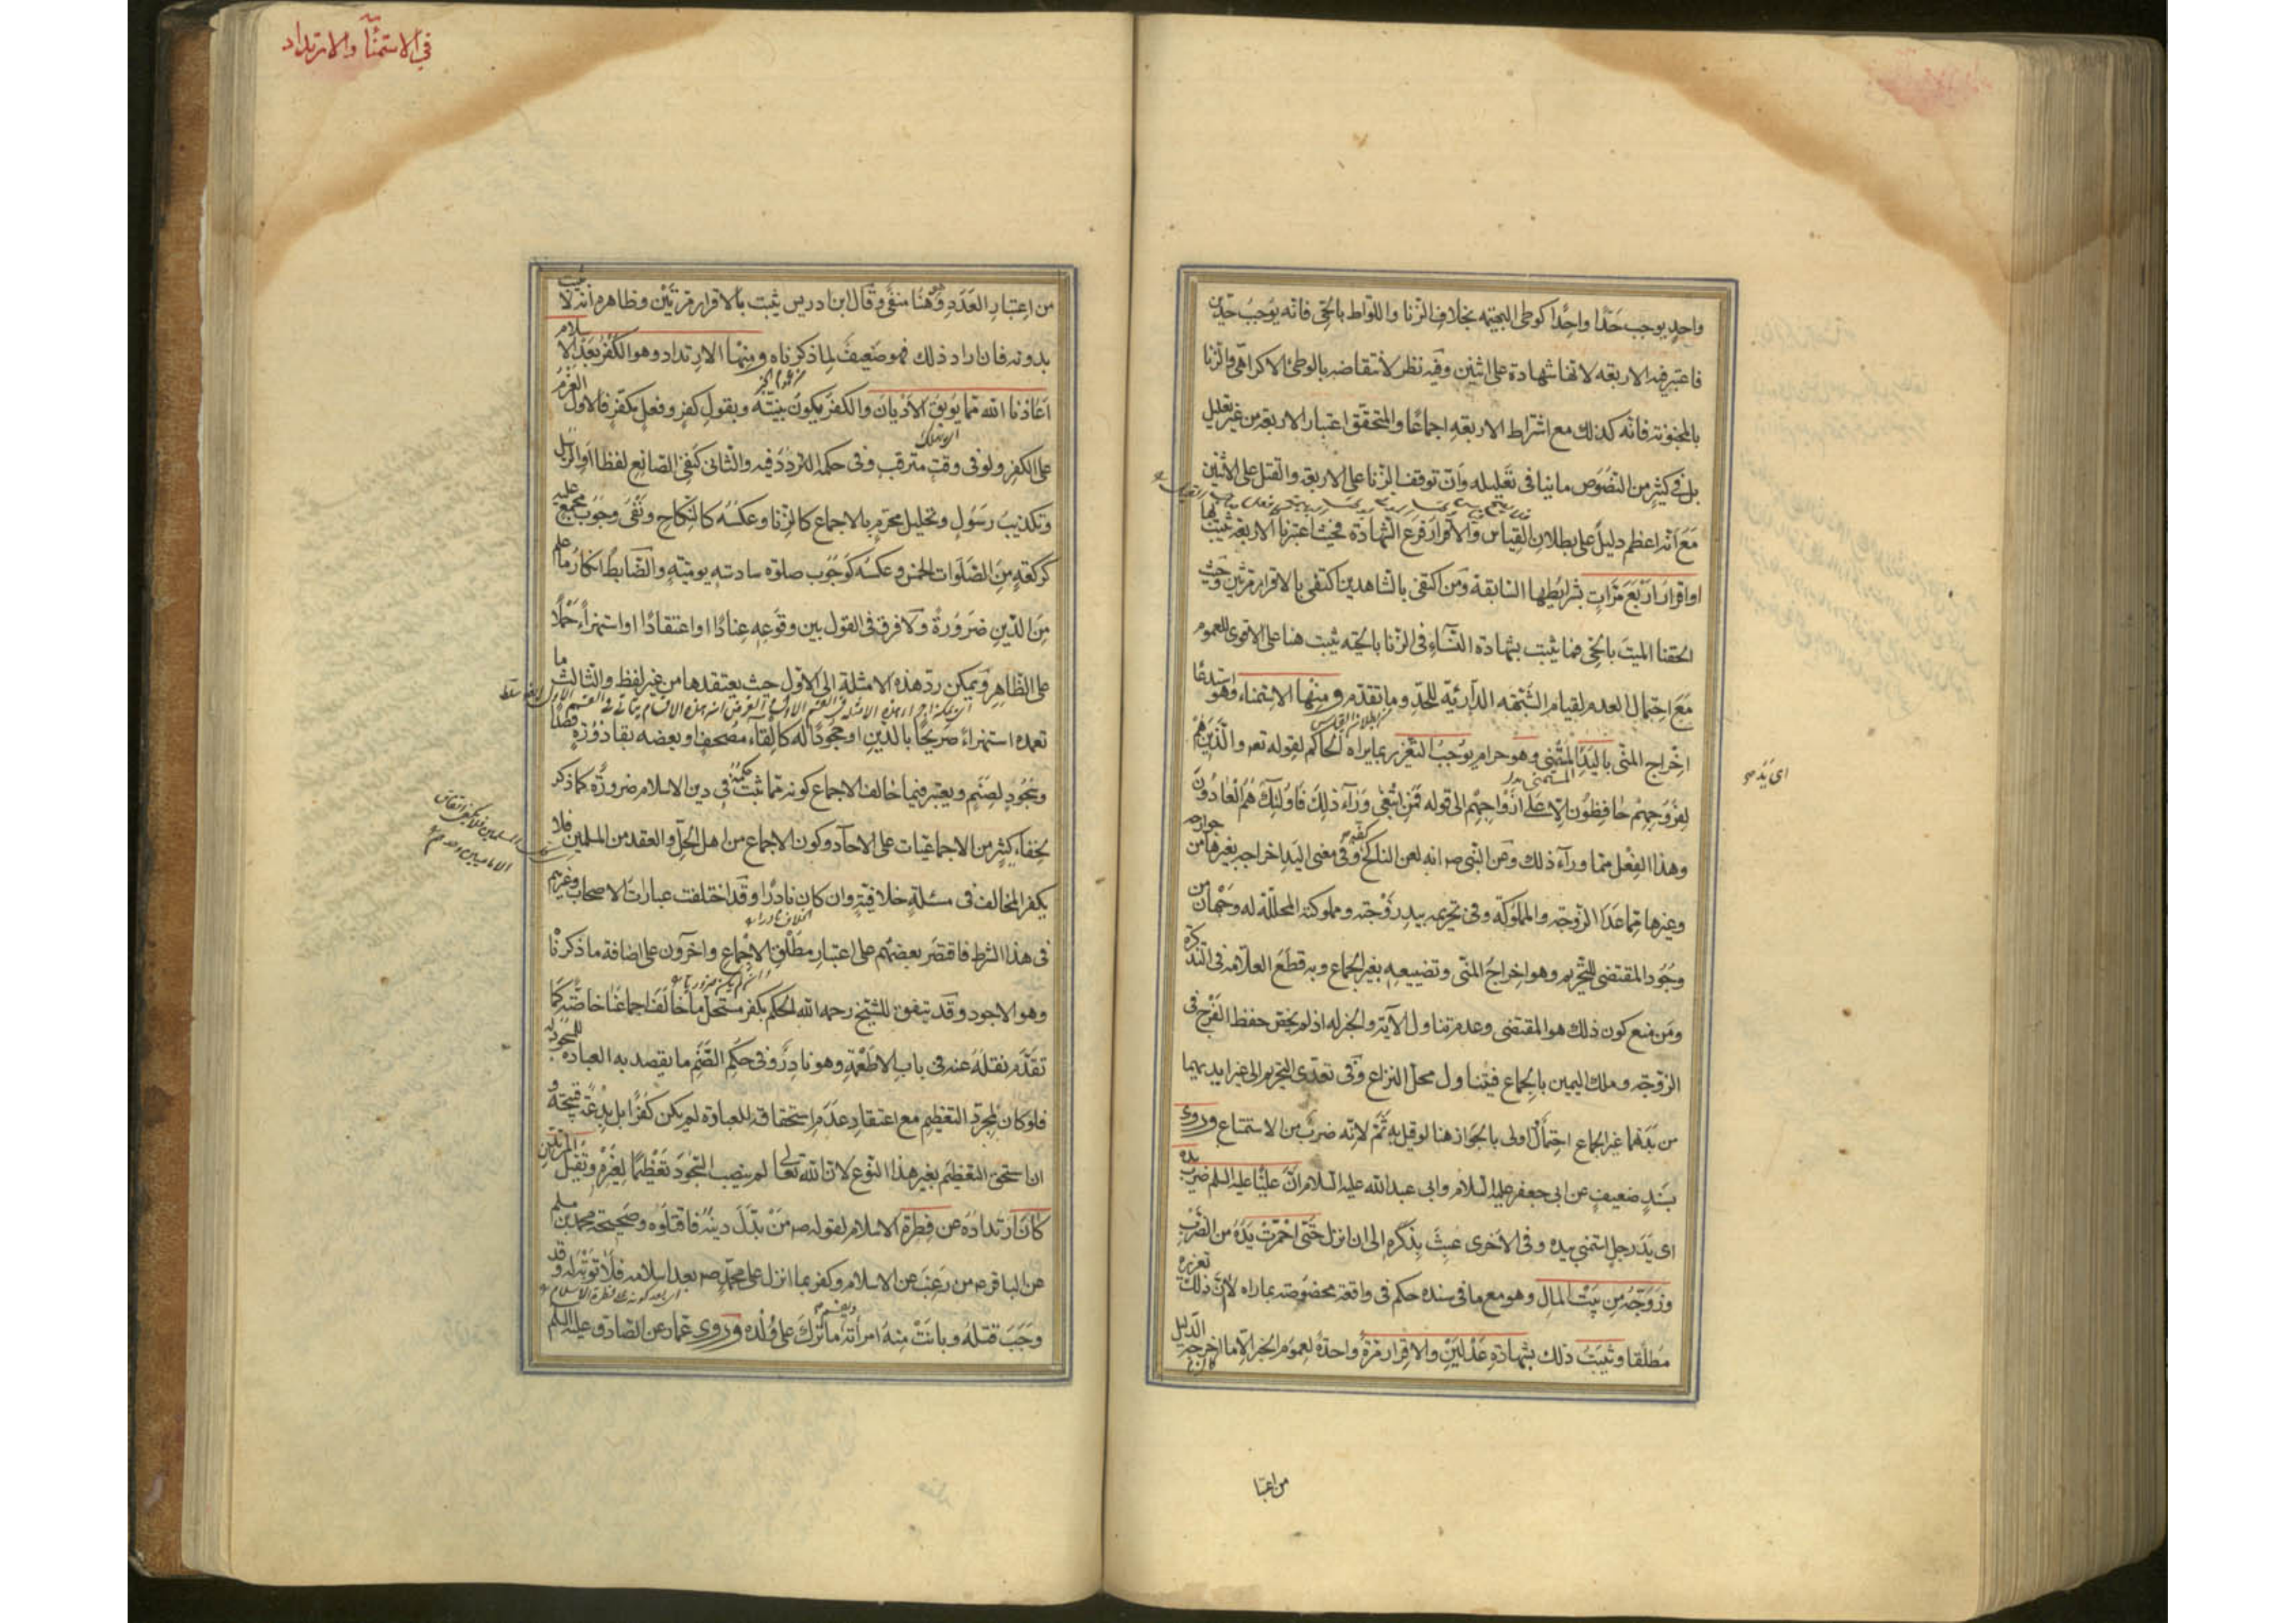 واحد يوجب حدّا واحدًا كوطى البهيمه بخلاف الزنا واللواط بالحىّ فانه يوجب حدين
فاعتبر فيه الاربعه لانها شهادة على اثنين وفيه نظر لانتقاضه بالوطئ الاكراهى والزنا
بالمجنونة فانه كذلك مع اشتراط الاربعه اجماعًا والمتحقق اعتبار الاربعة من غير تعليل
بل فى كثير من النصوص ما ينافى تعليله وان توقف الزنا على الاربعة والقتل على الاثنين
مع انه اعظم دليل على بطلان القياس والاقرار فرع الشهادة فحيث اعتبرنا الاربعة ثبت بها
او اقرار اربع مرات بشرايطها السابقة ومن اكتفى بالشاهدين اكتفى بالاقرار مرتين وحيث
الحقنا الميت بالحى فما يثبت بشهادة النساء فى الزنا بالحيّه يثبت هنا على الاقوى للعموم
مع احتمال العدم لقيام الشبهه الدارئة للحد وما تقدم ومنها الاستمناء وهو استدعا
اخراج المنى باليد المستمنى وهو حرام يوجب التعزير بما يراه الحاكم لقوله تعه والذين هم
لفروجهم حافظون الا على ازواجهم الى قوله فمن ابتغى وراء ذلك فاولئك هم العادون
وهذا الفعل مما وراء ذلك وعن النبى صه انه لعن الناكح كفه وفى معنى اليد اخراجه بغيرها من جوارحه
وغيرها مما عدا الزوجه والمملوكة وفى تحريمه بيد زوجته ومملوكته المحللة له وجهان من
وجود المقتضى للتحريم وهو اخراج المنى وتضييعه بغير الجماع وبه قطع العلامه فى التذكرة
ومن منع كون ذلك هو المقتضى وعدم تناول الآية والخبر له اذ لم يخص حفظ الفرج فى
الزوجه وملك اليمين بالجماع فيتناول محل النزاع وفى تعدى التحريم الى غير ايديهما
من بدنهما غير الجماع احتمال اولى بالجواز هنا لو قيل به ثَمّ لانه ضرب من الاستمتاع وروى
بسند ضعيف عن ابى جعفر عليه السلام وابى عبد الله عليه السلام ان عليًا عليه السلم ضرب يده
اى يد رجل استمنى بيده وفى الاخرى عبث بذكره الى ان انزل حتى احمرت يده من الضرب
وزوجه من بيت المال وهو مع ما فى سنده حكم فى واقعة مخصوصه بما راه لا ان ذلك تعزيره
مطلقا وثبت ذلك بشهادة عدلين والاقرار مرة واحدة لعموم الخبر الا ما اخرجه الدليل
اى يده صح
من اعتبا
فى الاستمنا والارتداد
من اعتبار العدد وهو هنا منفى وقال ابن ادريس يثبت بالاقرار مرتين وظاهره انه لا يثبت
بدونه فان اراد ذلك فهو ضعيف لما ذكرناه ومنها الارتداد وهو الكفر بعد الاسلام
اعاذنا الله مما يوبق الاديان والكفر يكون بنيّته وبقول كفر وفعل مكفر فالاول العزم
على الكفر ولو فى وقت مترقب وفى حكمه التردد فيه والثانى كنفى الصانع لفظا او الرسل
وتكذيب رسول وتحليل محرم بالاجماع كالزنا وعكسه كالنكاح ونفى وجوب مجمع عليه
كركعة من الصلوات الخمس وعكسه كوجوب صلوة سادسة يومية والضابط انكار ما علم
من الدين ضرورة ولا فرق فى القول بين وقوعه عنادًا او اعتقادًا او استهزاءً حملًا
على الظاهر ويمكن رد هذه الامثلة الى الاول حيث يعتقدها من غير لفظ والثالث ما
تعمده استهزاءً صريحا بالدين او جحودا له كالقاء مصحف او بعضه بقاذورة قصدًا
وسجود لصنم ويعتبر فيما خالف الاجماع كونه مما ثبت حكمه فى دين الاسلام ضرورة كما ذكر
لخفاء كثير من الاجماعيات على الاحاد وكون الاجماع من اهل الحل والعقد من المسلمين فلا
يكفر المخالف فى مسئلة خلافية وان كان نادرًا وقد اختلفت عبارات الاصحاب وغيرهم
فى هذا الشرط فاقتصر بعضهم على اعتبار مطلق الاجماع واخرون على اضافة ما ذكرنا
وهو الاجود وقد يتفق للشيخ رحمه الله الحكم بكفر مستحل ما خالف اجماعنا خاصة كما
تقدم نقله عنه فى باب الاطعمة وهو نادر وفى حكم الصنم ما يقصد به العبادة للسجود له
فلو كان لمجرد التعظيم مع اعتقاد عدم استحقاقه للعبادة لم يكن كفرًا بل بدعة قبيحة و
ان استحق التعظيم بغير هذا النوع لان الله تعالى لم ينصب السجود تعظيمًا لغيره ويقتل المرتد ان
كان ارتداده عن فطرة الاسلام لقوله صه من بدل دينه فاقتلوه وصحيحة محمد بن مسلم
عن الباقر عه من رغب عن الاسلام وكفر بما انزل على محمد صه بعد اسلامه فلا توبة له وقد
وجب قتله وبانت منه امرأته ويقسم ما ترك على ولده وروى عمار عن الصادق عليه السلم